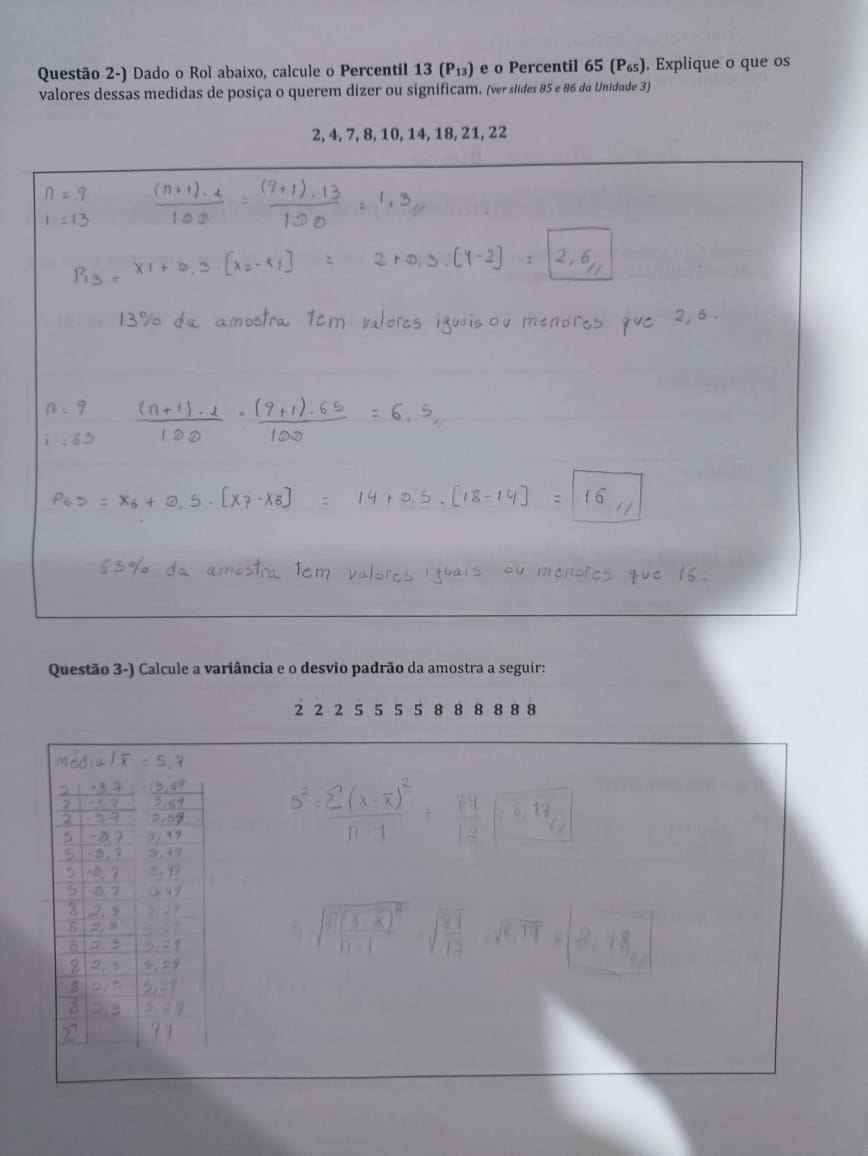 Questão 2-) Dado o Rol abaixo, calcule o Percentil 13 (P₁₃) e o Percentil 65 (P₆₅). Explique o que os
valores dessas medidas de posiça o querem dizer ou significam. (ver slides 85 e 86 da Unidade 3)
2, 4, 7, 8, 10, 14, 18, 21, 22
n = 9 (n+1).i/100 = (9+1).13/100 = 1,3
i = 13
P13 = x1 + 0,3.[x2-x1] = 2+0,3.[4-2] = 2,6
13% da amostra tem valores iguais ou menores que 2,6.
n = 9 (n+1).i/100 = (9+1).65/100 = 6,5
i = 65
P65 = x6 + 0,5.[x7-x6] = 14+0,5.[18-14] = 16
65% da amostra tem valores iguais ou menores que 16.
Questão 3-) Calcule a variância e o desvio padrão da amostra a seguir:
2 2 2 5 5 5 5 8 8 8 8 8 8
média/x̄ = 5,7
2 -3,7 13,69
2 -3,7
2
5 -0,7
5 -0,7
5 -0,7 0,49
5 -0,7 0,49
8 2,3 5,29
8 2,3
8 2,3 5,29
8 2,3 5,29
8 2,3 5,29
8 2,3 5,29
Σ
S² = Σ(x-x̄)²/n-1 = 6,17
√Σ(x-x̄)²/n-1 = √6,17 = 2,48